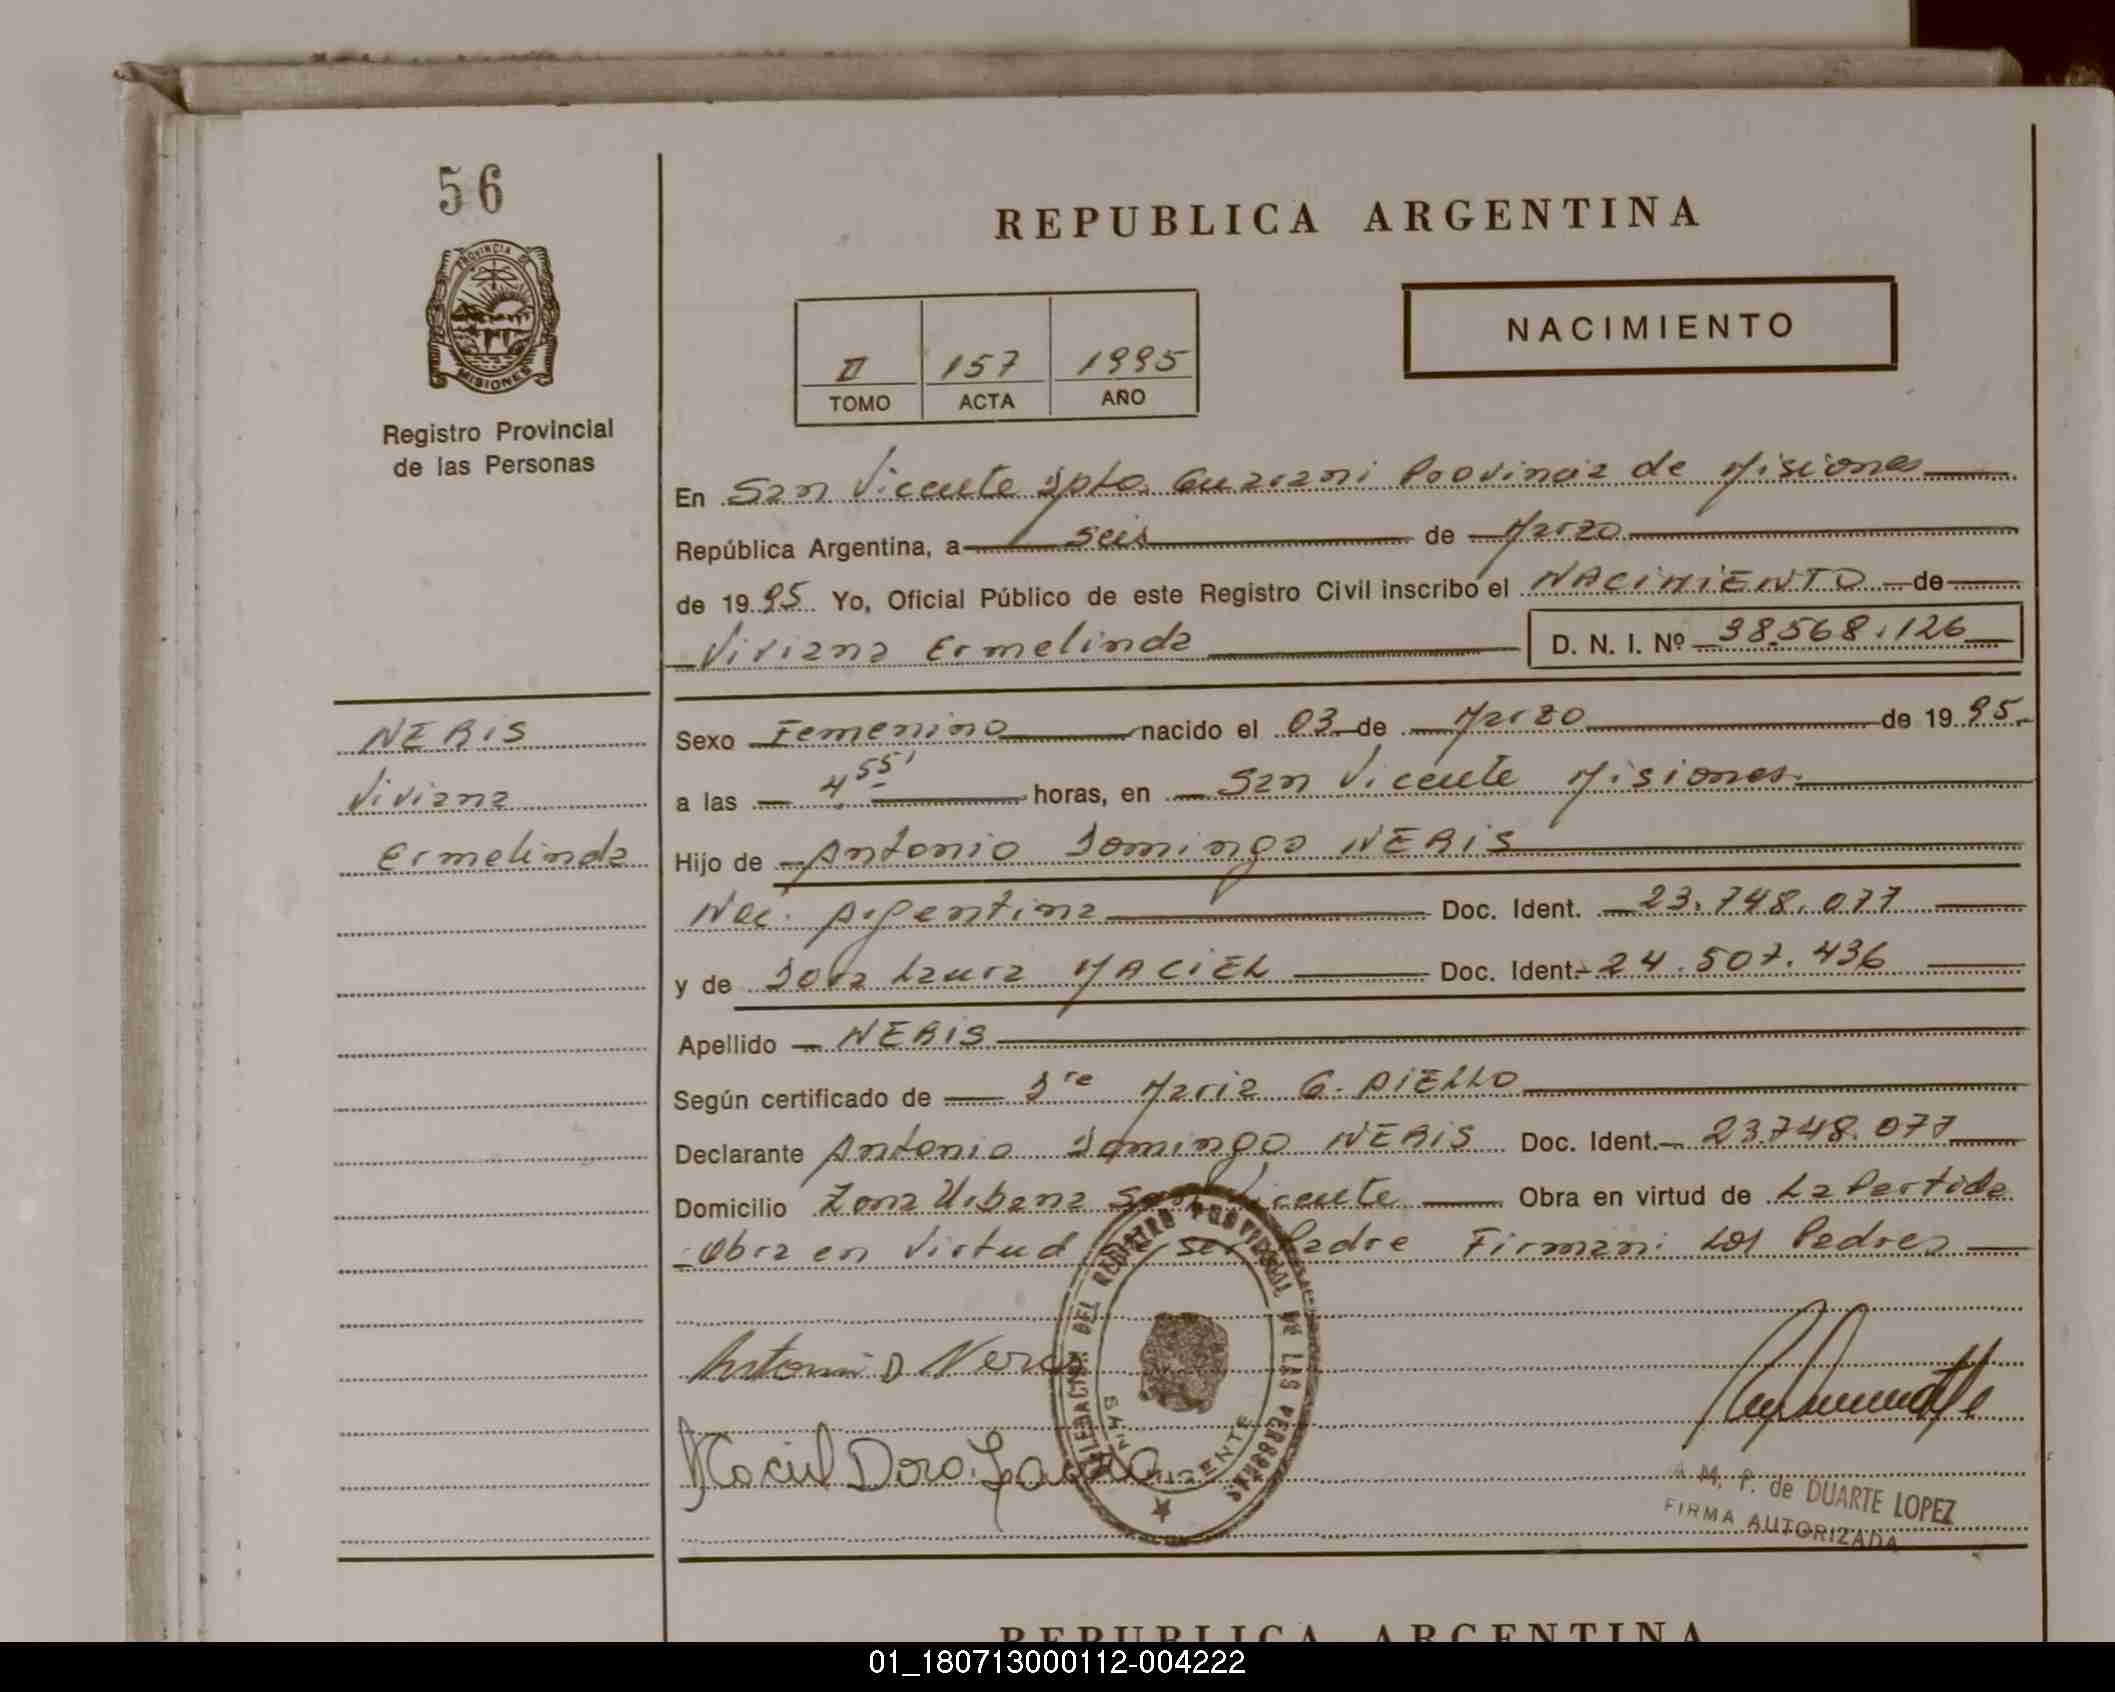 56
PROVINCIA DE
MISIONES
Registro Provincial
de las Personas
REPUBLICA ARGENTINA
NACIMIENTO
II 157 1995
TOMO ACTA AÑO
En San Vicente Dpto. Guarani Provincia de Misiones
República Argentina, a seis de Marzo
de 1995 Yo, Oficial Público de este Registro Civil inscribo el NACIMIENTO de
Viviana Ermelinda D. N. I. Nº 38.568.126
NERIS
Viviana
Ermelinda
Sexo Femenino nacido el 03 de Marzo de 1995.
a las 4 55' horas, en San Vicente Misiones.
Hijo de Antonio Domingo NERIS
Nac. Argentina Doc. Ident. 23.748.077
y de Dora Laura MACIEL Doc. Ident. 24.507.436
Apellido NERIS
Según certificado de Dra Maria G. AIELLO
Declarante Antonio Domingo NERIS Doc. Ident. 23.748.077
Domicilio Zona Urbana San Vicente Obra en virtud de La Partida
Obra en virtud de ser Padre Firman: Los Padres
DELEGACION DEL REGISTRO PROVINCIAL DE LAS PERSONAS
SAN VICENTE
Antonio D Neris
Maciel Dora Laura
M. P. de DUARTE LOPEZ
FIRMA AUTORIZADA
REPUBLICA ARGENTINA
01_180713000112-004222